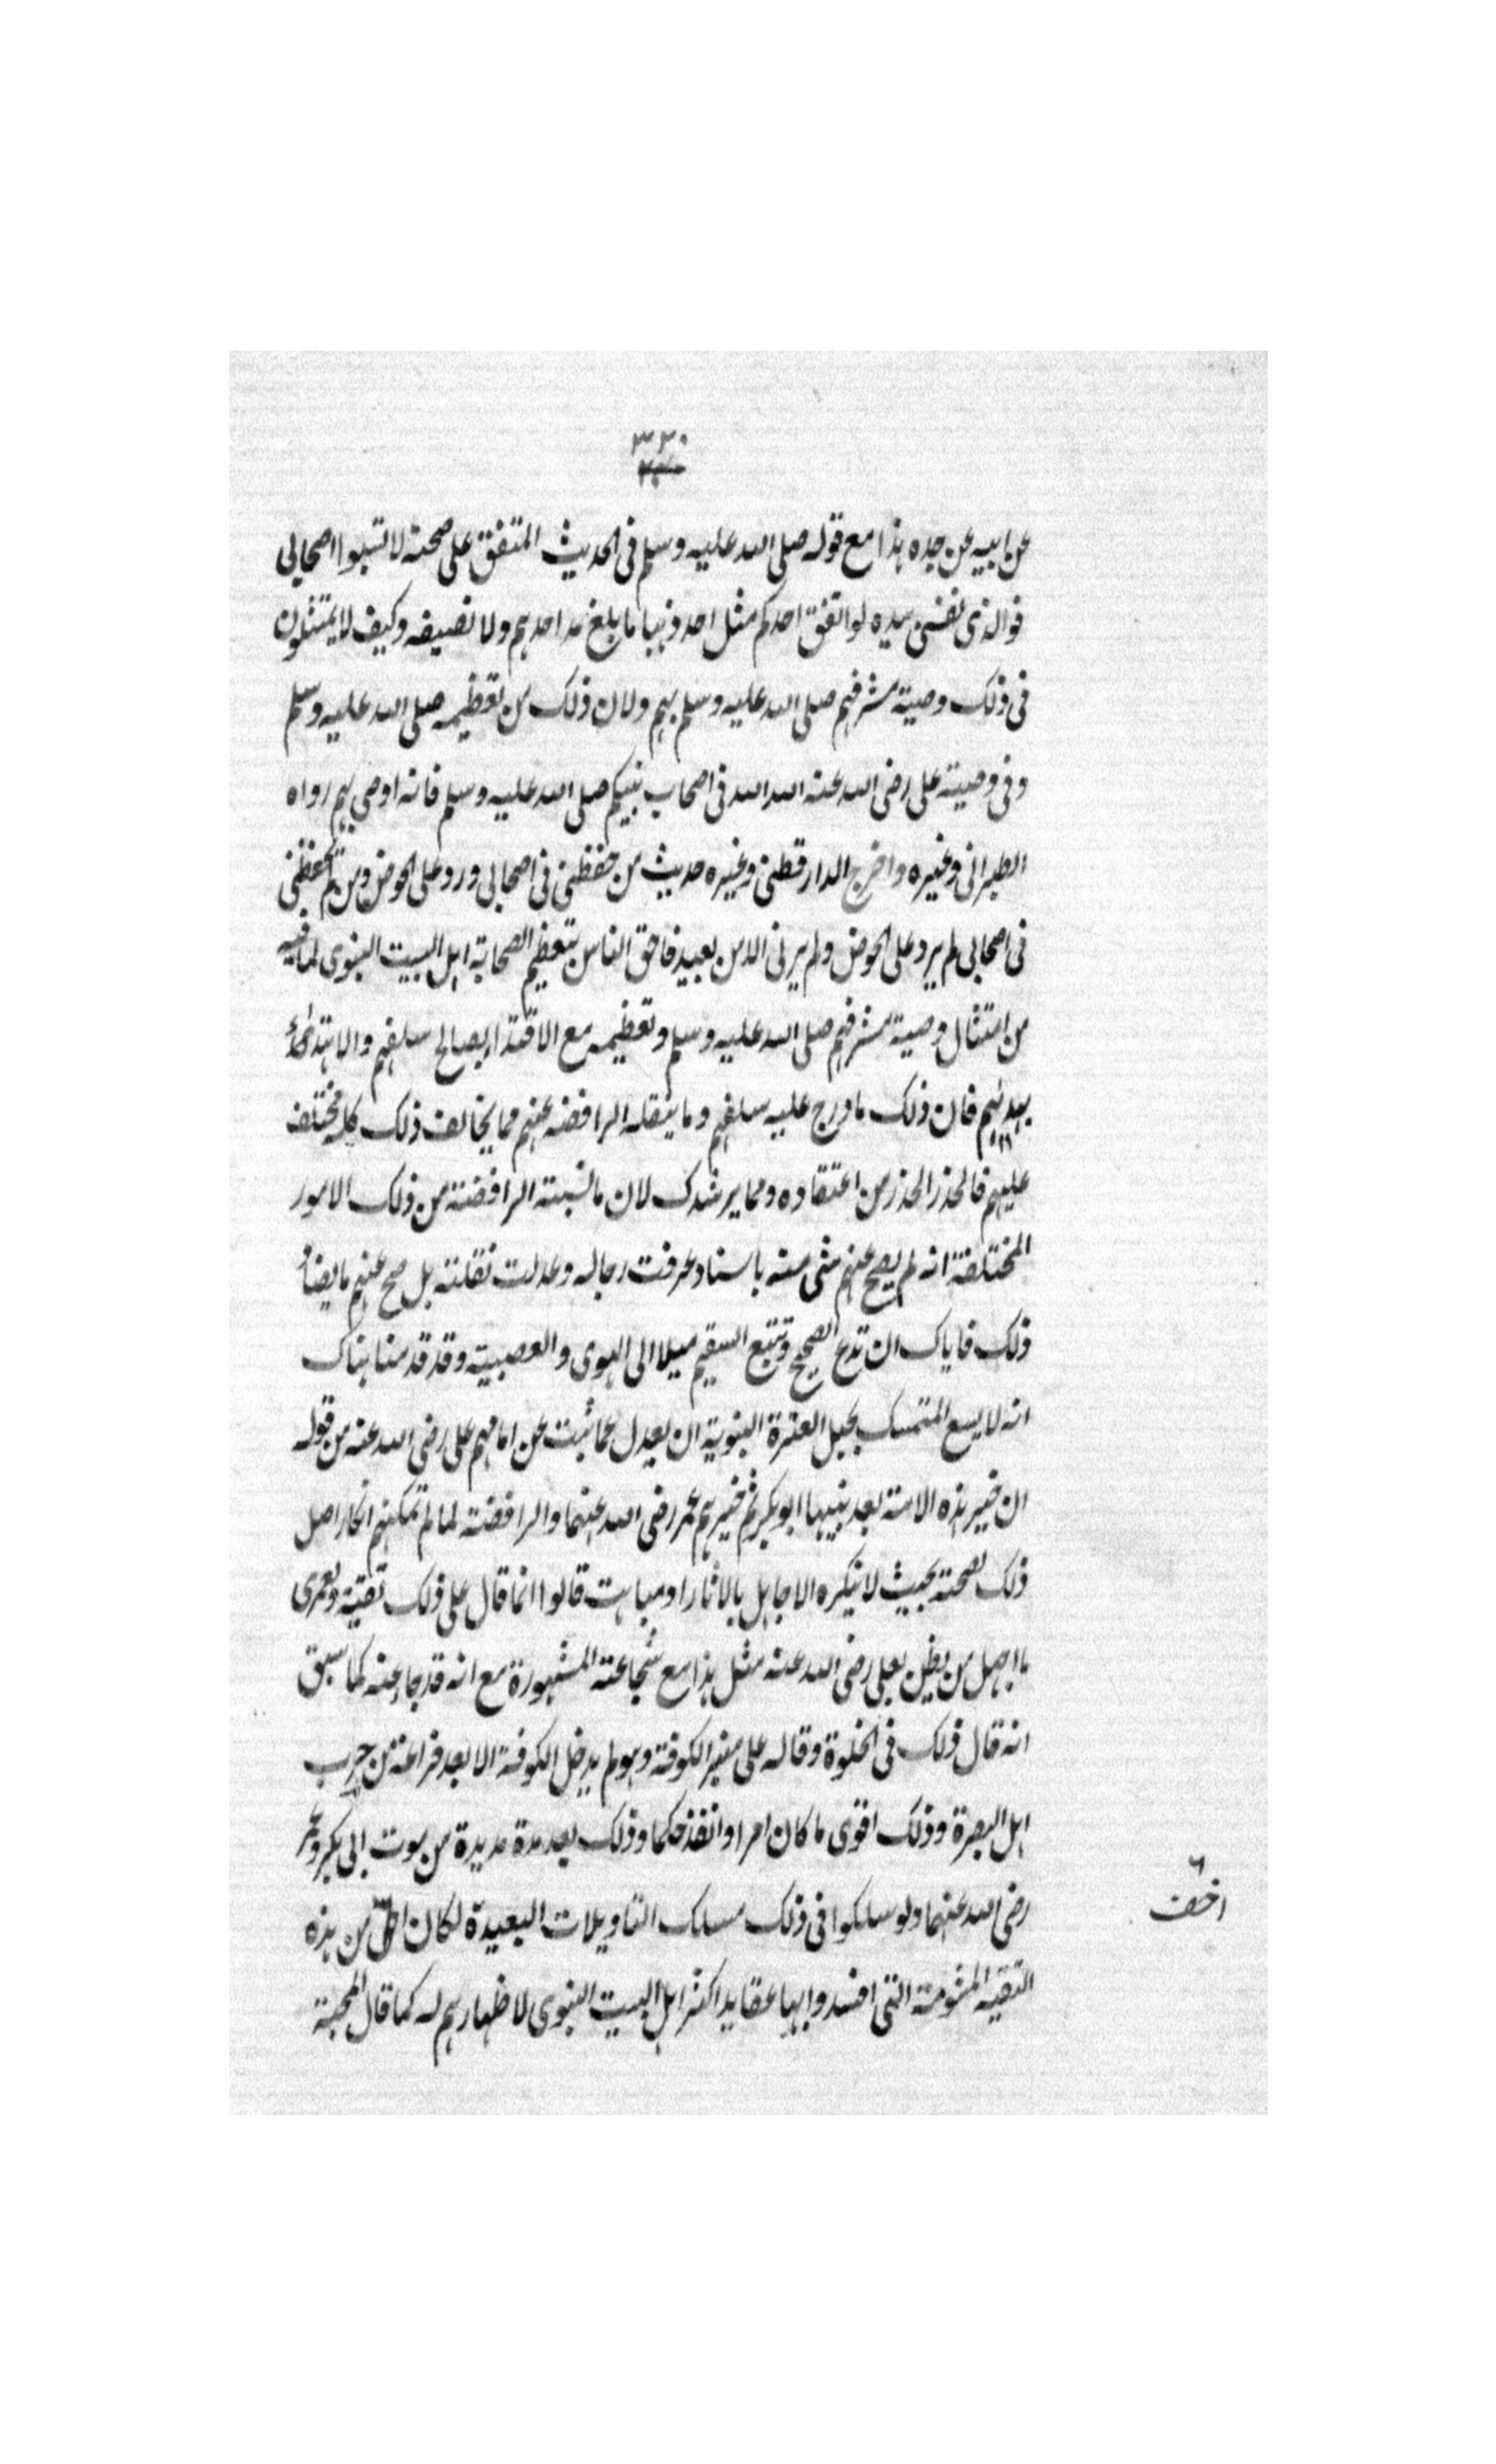 ٣٣٠
عن ابيه عن جده هذا مع قوله صلى الله عليه وسلم فى الحديث المتفق على صحته لا تسبوا اصحابى
فوالذى نفسى بيده لو انفق احدكم مثل احد ذهبا ما بلغ مد احدهم ولا نصيفه وكيف لا يمتثلون
فى ذلك وصية مشرفهم صلى الله عليه وسلم بهم ولان ذلك من تعظيمه صلى الله عليه وسلم
وفى وصية على رضى الله عنه الله الله فى اصحاب نبيكم صلى الله عليه وسلم فانه اوصى بهم رواه
الطبرانى وغيره واخرج الدارقطنى وغيره حديث من حفظنى فى اصحابى ورد على الحوض ومن لم يحفظنى
فى اصحابى لم يرد على الحوض ولم يرنى الا من بعيد فاحق الناس بتعظيم الصحابة اهل البيت النبوى لما فيه
من امتثال وصية مشرفهم صلى الله عليه وسلم وتعظيمه مع الاقتداء بصالح سلفهم والاهتداء
بهديهم فان ذلك ما درج عليه سلفهم وما ينقله الرافضه عنهم مما يخالف ذلك كله مختلق
عليهم فالحذر الحذر من اعتقاده ومما يرشدك لان ما نسبته الرافضة من ذلك الامور
المختلقة انه لم يصح عنهم شى منه باسناد عرفت رجاله وعدلت نقلته بل صح عنهم ما يضاد
ذلك فاياك ان تدع الصحيح وتتبع السقيم ميلا الى الهوى والعصبية وقد قدمنا هناك
انه لا يسع المتمسك بحبل العترة النبوية ان يعدل عما ثبت عن امامهم على رضى الله عنه من قوله
ان خير هذه الامة بعد نبيها ابو بكر ثم خيرهم عمر رضى الله عنهما والرافضة لما لم تمكنهم انكار اصل
ذلك لصحته بحيث لا ينكره الا جاهل بالاثار او مباهت قالوا انما قال على ذلك تقية ولعمرى
ما اجهل من يظن بعلى رضى الله عنه مثل هذا مع شجاعته المشهورة مع انه قد جاء عنه كما سبق
انه قال ذلك فى الخلوة وقاله على منبر الكوفة وهو لم يدخل الكوفة الا بعد فراغه من حرب
اهل البصرة وذلك اقوى ما كان امرا وانفذ حكما وذلك بعد مدة مديدة من موت ابى بكر وعمر
رضى الله عنهما ولو سلكوا فى ذلك مسلك التاويلات البعيدة لكان من هذه
اخف
التقية المشومة التى افسدوا بها عقايد اكثر اهل البيت النبوى لاظهارهم له كما قال المحبة